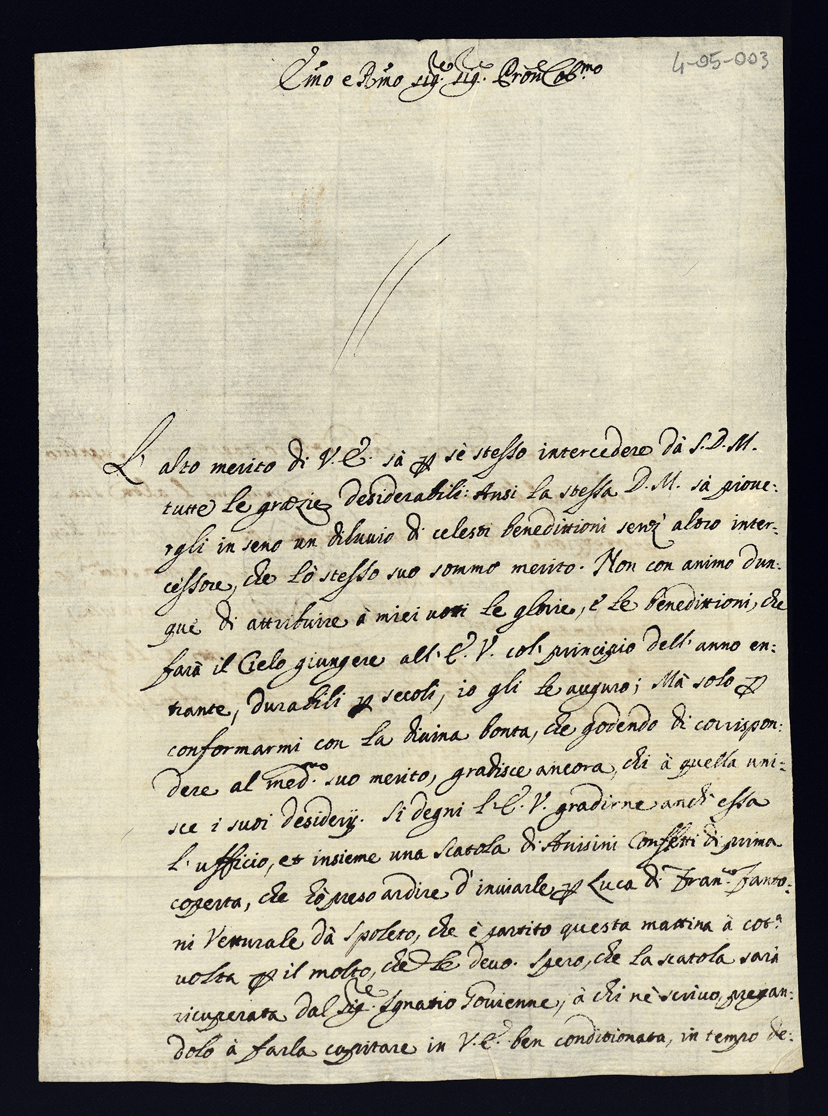 4-05-003
Em̃o e Rm̃o Sig.re Sig.re Prõn Col.mo
L' alto merito di V.E. sà ꝑ sè stesso intercedere dà S.D.M.
tutte le grazie desiderabili: Ansi la stessa D.M. sà piove:
rgli in seno un diluvio di celesti benedittioni senz' altro inter:
cessore, che lò stesso suo sommo merito. Non con animo dun:
que di attribuire à miei voti le glorie, e le benedittioni, che
farà il Cielo giungere all' E.V. col' principio dell' anno en:
trante, durabili ꝑ secoli, io gli le auguro; Mà solo ꝑ
conformarmi con la divina bontà, che godendo di corrispon:
dere al med.mo suo merito, gradisce ancora, chi à quella uni:
sce i suoi desiderij. Si degni l' E.V. gradirne anch' essa
l' ufficio, et insieme una scatola di Anisini Confetti di prima
coperta, che hò preso ardire d' inviarle ꝑ Luca di Fran.co Fanto:
ni Vetturale dà Spoleto, che è partito questa mattina à cot.a
volta ꝑ il molto, che le devo. Spero, che la scatola sarà
ricuperata dal Sig.re Ignatio Govienne, à chi nè scrivo, pregan:
dolo à farla capitare in V.E. ben conditionata, in tempo de: